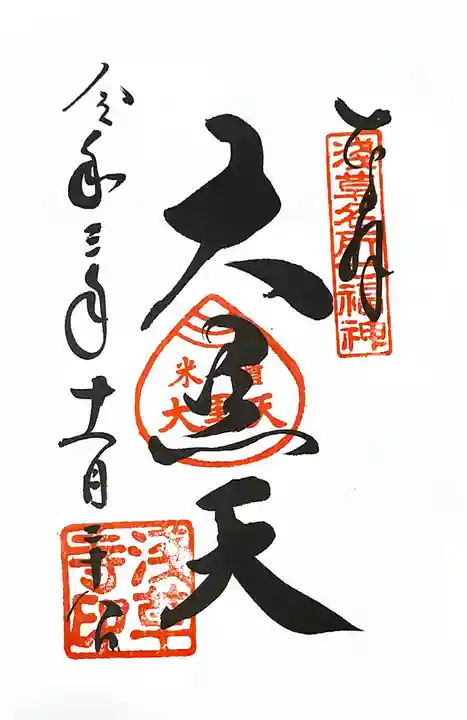 奉拝
浅草名所七福神
大黒天
米
大黒天
令和三年十一月二十八日
浅草寺印